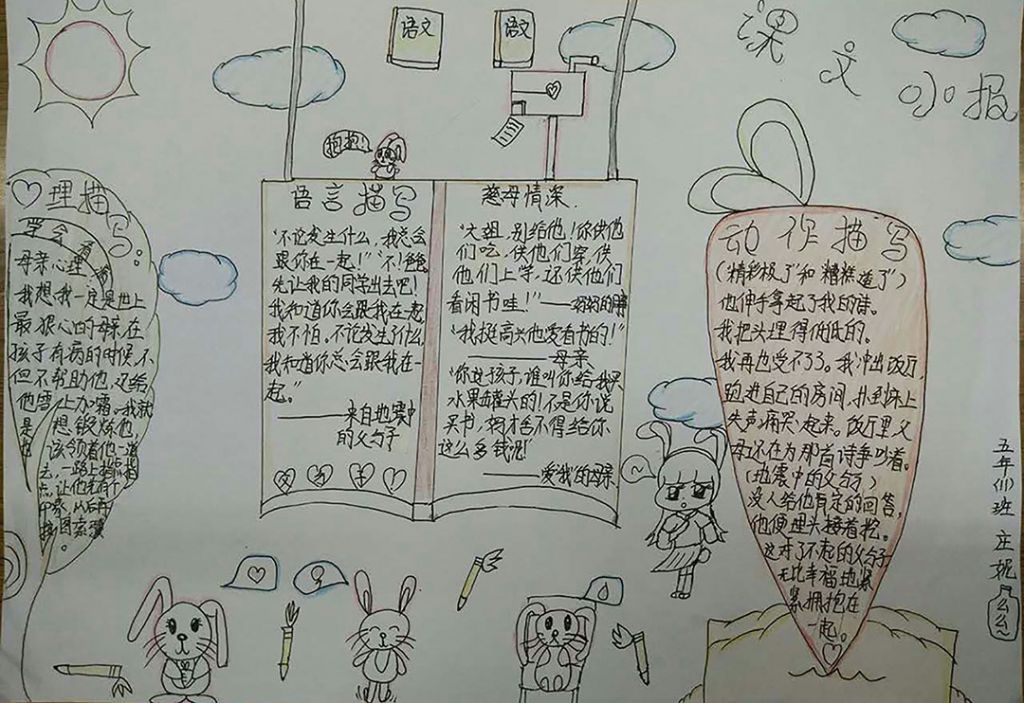 课文小报
语文
语文
抱抱!
心理描写:
学会
母亲心理
我想,我一定是世上
最狠心的母亲,在
孩子有病的时候,不
但不帮助他,还给
他雪上加霜。我就
是想锻炼他,
该领着他一道
去,一路上指
点,让他先有个
印象,然后再
按图索骥。
语言描写
“不论发生什么,我总会
跟你在一起!”“不!爸爸,
先让我的同学出去吧!
我知道你会跟我在一起,
我不怕。不论发生了什么,
我知道你总会跟我在一
起。”
——来自地震中
的父与子
父与子
慈母情深.
“大姐,别给他!你供他
们吃,供他们穿,供
他们上学,还供他们
看闲书哇!”——妈妈的同事
“我挺高兴他爱看书的!”
——母亲
“你这孩子,谁叫你给我买
水果罐头的!不是你说
买书,妈才舍不得给你
这么多钱呢!”
——爱“我”的母亲
动作描写
(精彩极了和糟糕透了)
他伸手拿起了我的诗。
我把头埋得低低的。
我再也受不了了。我冲出饭厅,
跑进自己的房间,扑到床上
失声痛哭起来。饭厅里,父
母还在为那首诗争吵着。
(地震中的父与子)
没人给他肯定的回答,
他便埋头接着挖。
这对了不起的父与子,
无比幸福地紧
紧拥抱在
一起。
五年(1)班 庄妮
么么~